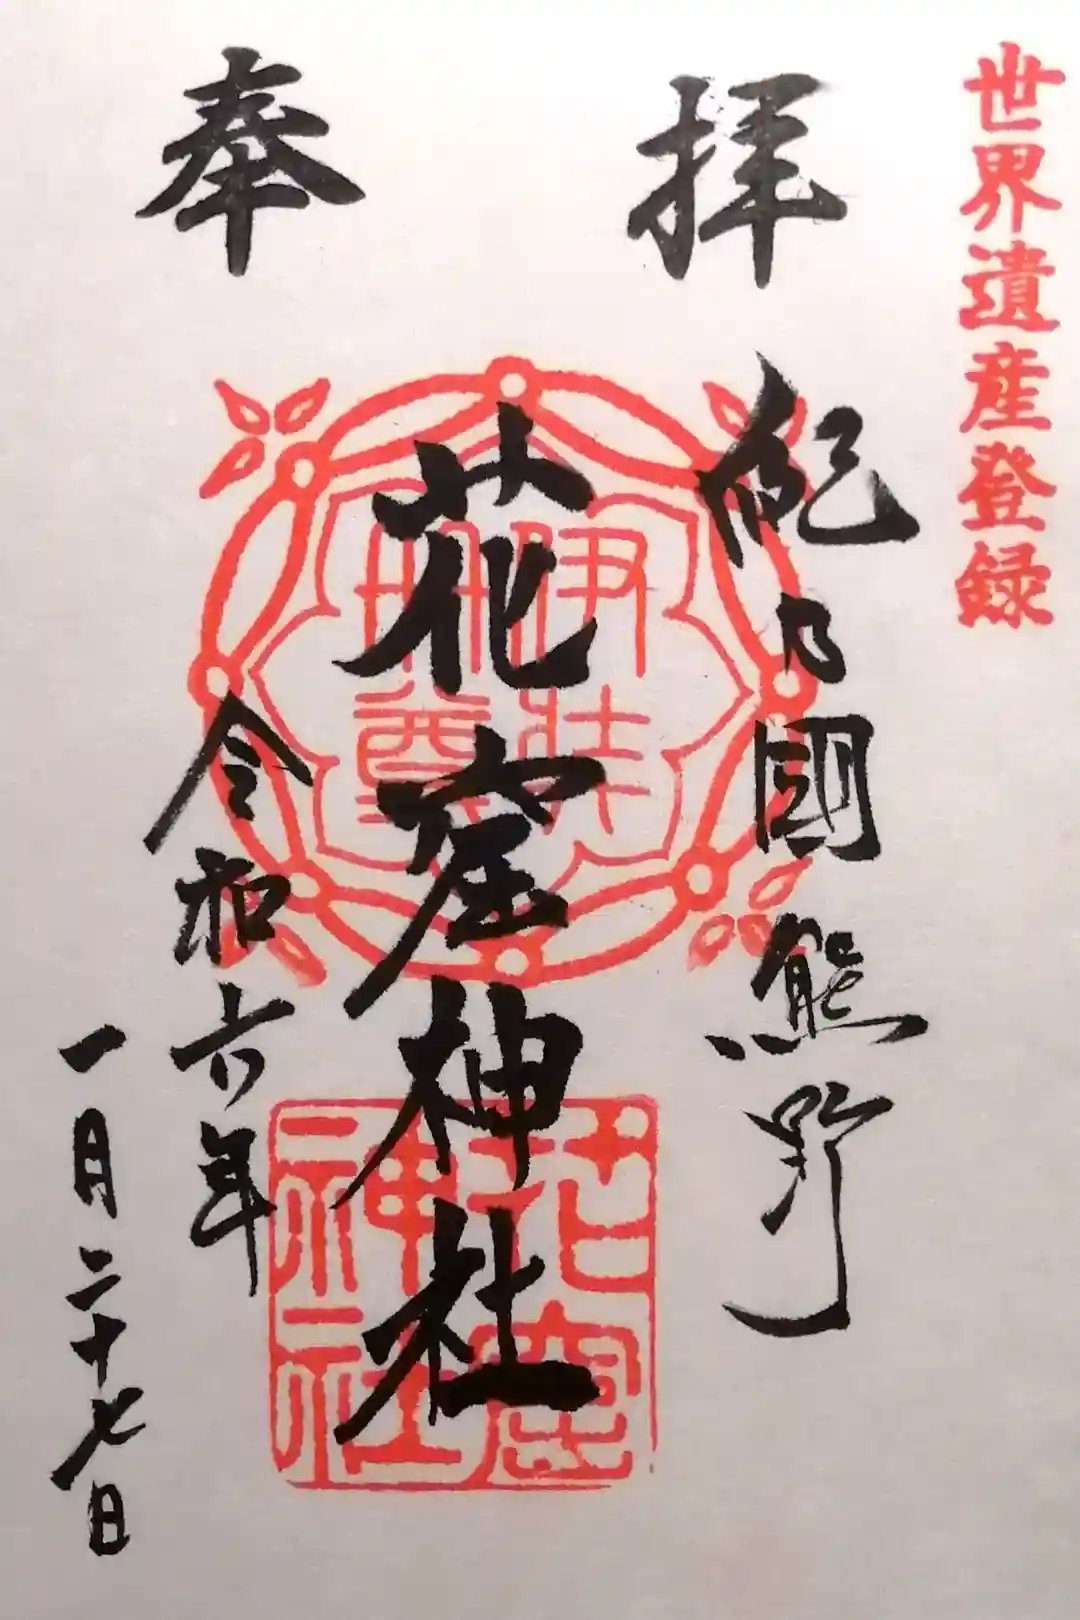 世界遺産登録
奉拝
紀乃國熊野
花窟神社
令和六年
一月二十七日
伊弉
冊尊
花窟
神社